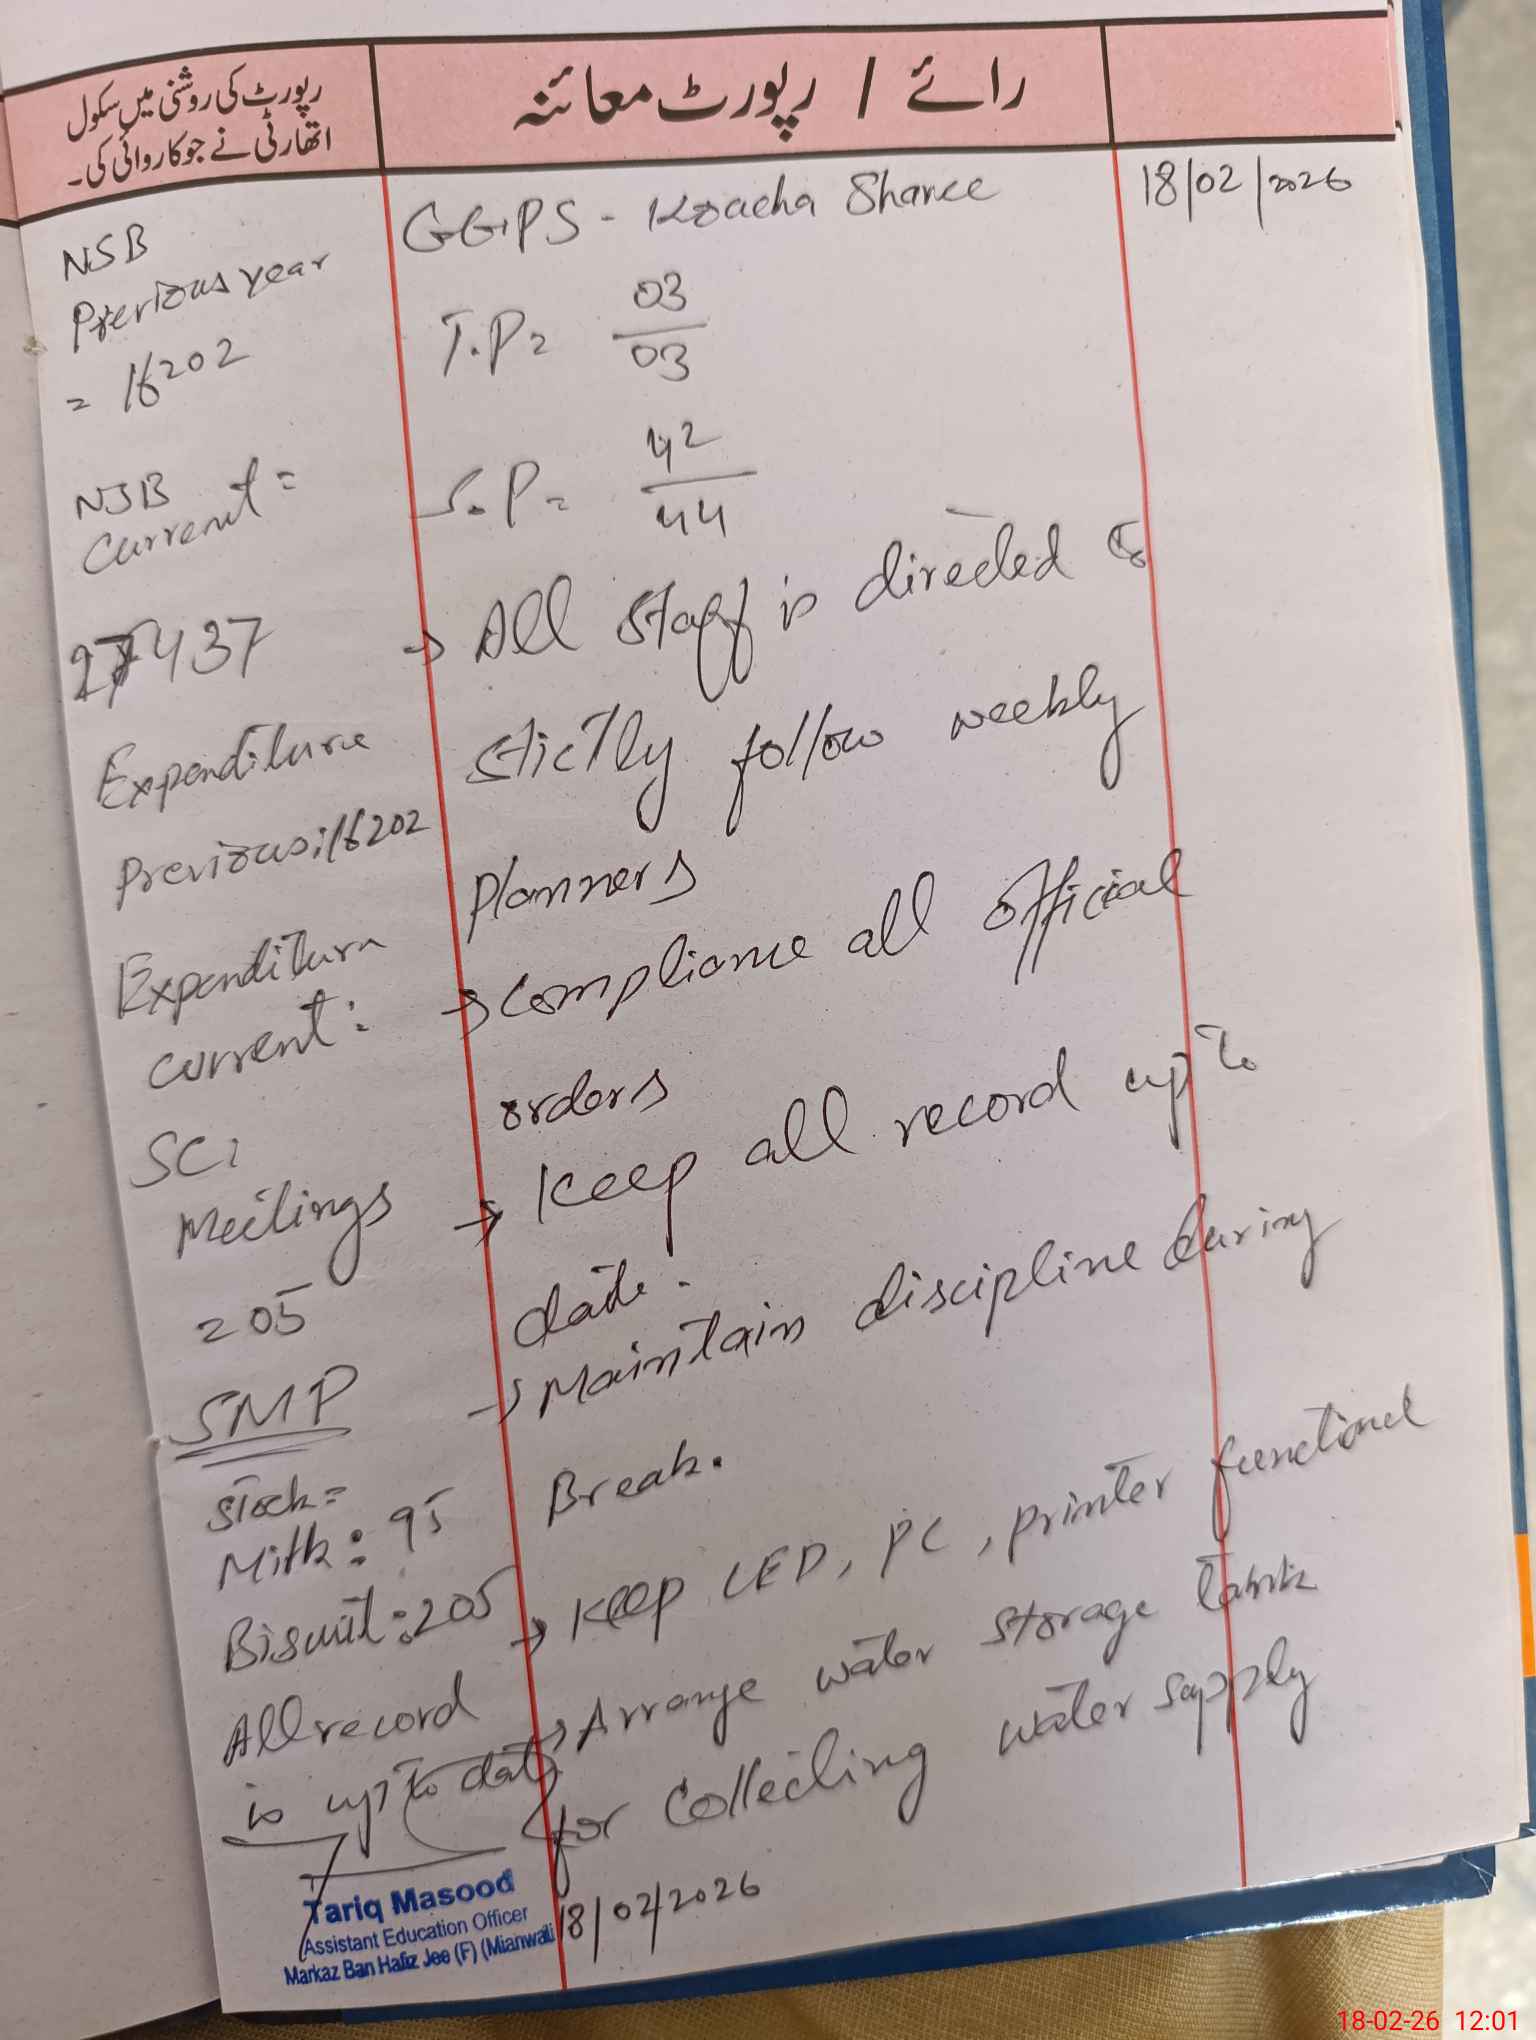 رپورٹ کی روشنی میں سکول
اتھارٹی نے جو کاروائی کی۔
رائے / رپورٹ معائنہ
18/02/2026
GGPS - Kracha Sharee
T.P= 03/03
S.P= 42/44
→ All Staff is directed to
stictly follow weekly
planners
→ compliance all official
orders
→ Keep all record up to
date.
→ Maintain discipline during
Break.
→ Keep LED, PC, printer functional
→ Arrange water storage tank
for collecting water supply
18/02/2026
NSB
Previous year
= 16202
NSB
Current =
437
Expenditure
Previous: 16202
Expenditure
current:
SC:
Meetings
= 05
SMP
Stock=
Milk: 95
Biscuit: 205
All record
is up to date
Tariq Masood
Assistant Education Officer
Markaz Ban Hafiz Jee (F) (Mianwali)
18-02-26 12:01